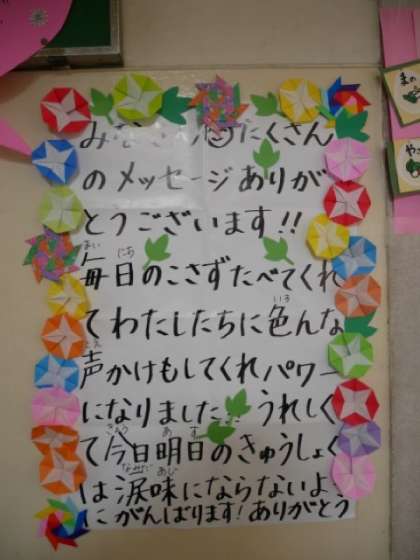 みなさんたくさん
のメッセージありが
とうございます!!
毎日のこさずたべてくれ
てわたしたちに色んな
声かけもしてくれパワー
になりました うれしく
て今日明日のきゅうしょく
は涙味にならないよう
にがんばります!ありがとう
まの
やさ